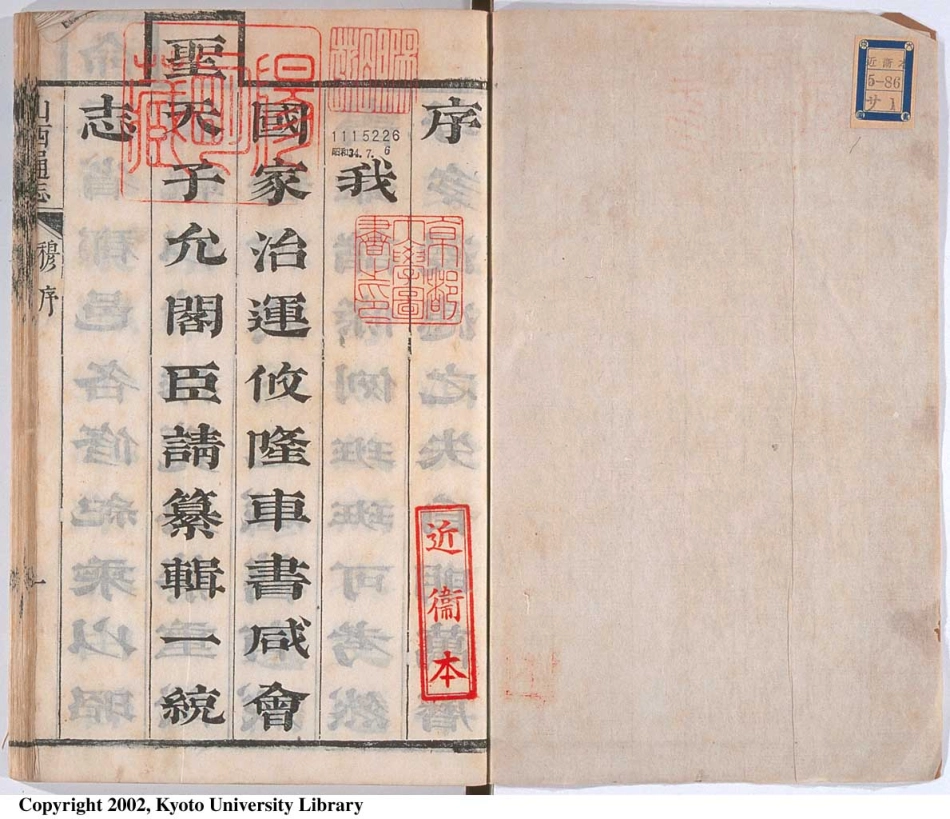 近衞本
5-86
サ 1
序
我
國家治運攸隆車書咸會
聖天子允閣臣請纂輯一統
志
山西通志
穆序
一
1115226
昭和34.7.6
京都大學圖書之印
近衞本
Copyright 2002, Kyoto University Library